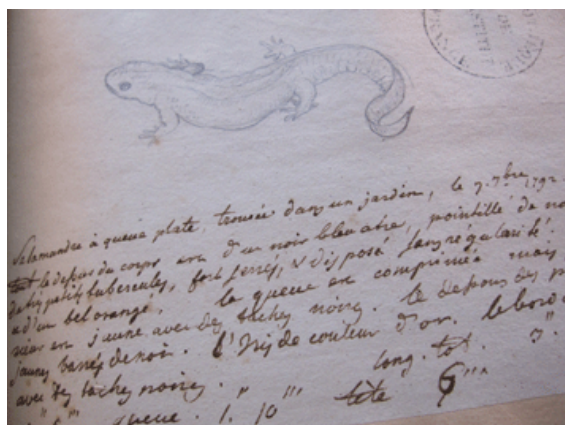 Salamandre à queue plate, trouvée dans un jardin, le 9. 7bre 1792.
tout le dessus du corps est d'un noir bleuatre, pointillé de
de très petits tubercules, fort serrés, & disposé sans régularité.
a d'un bel orangé. la queue est comprimée mais
en jaune avec des taches noires. le dessous des
jaunes barrés de noir. l'Iris de couleur d'or. le bord
avec des taches noires. long. tot. 3."
queue. 1." 10"' tête 6"'